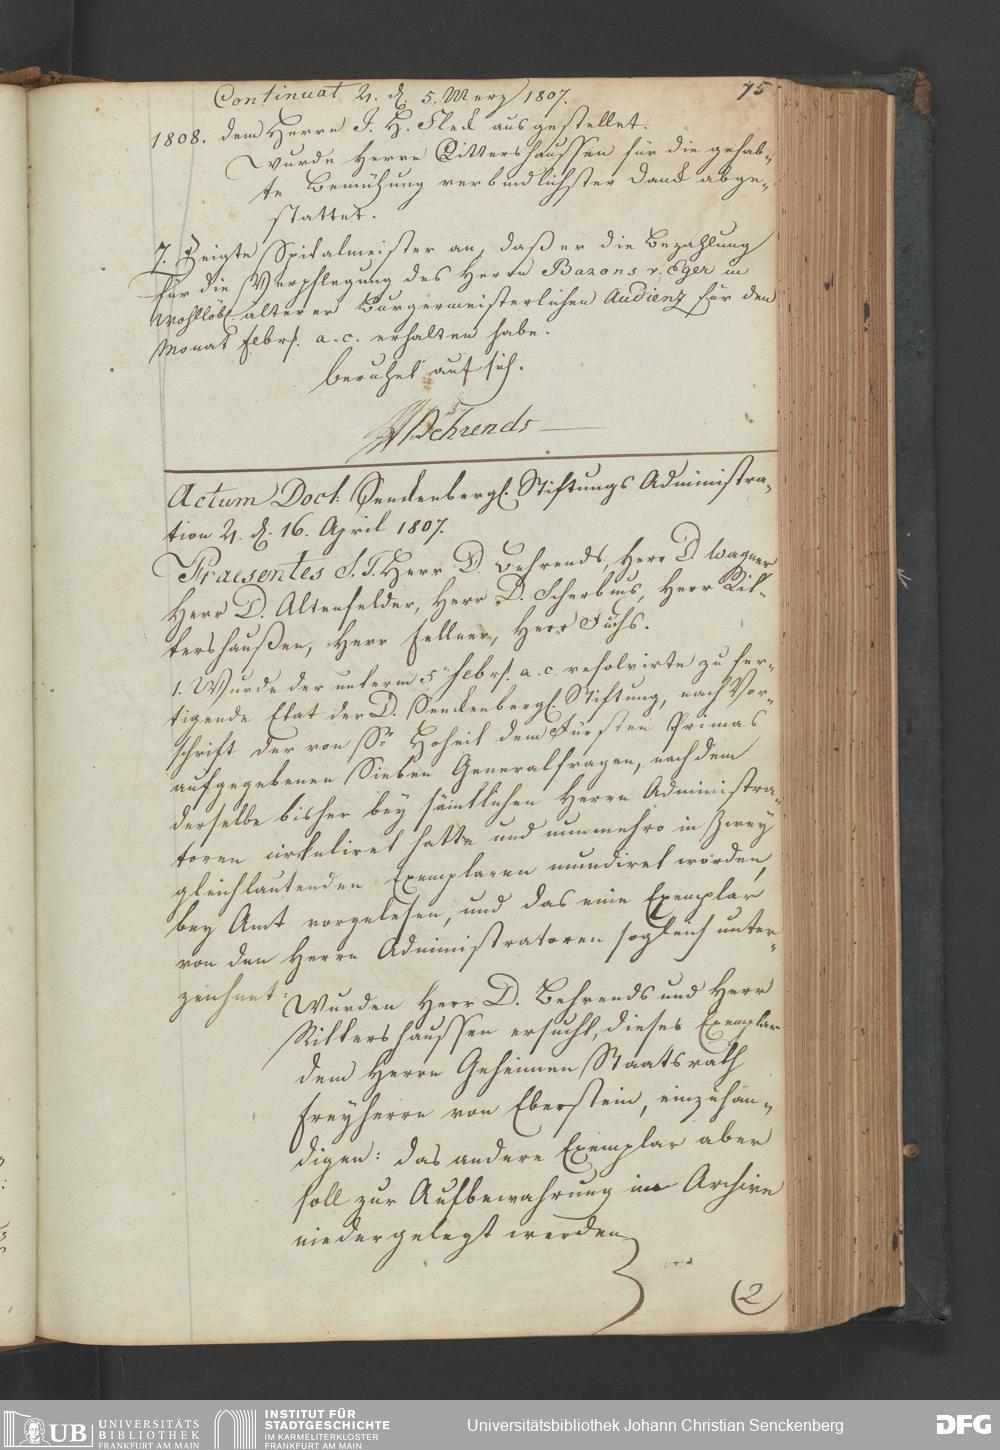 75
Continuat 4. d. 5. Merz 1807.
1808. dem Herrn J. H. Fleck ausgestellet.
Wurde Herrn Rittershaussen für die gehab-
te Bemühung verbindlichster Danck abge-
stattet.
7. Zeigte Spitalmeister an, daß er die Bezahlung
für die Verpflegung des Herrn Barons v. Eger in
Wohllöbl. älterer Burgermeisterlichen Audienz für den
Monat Febrs. a. c. erhalten habe.
beruhet auf sich.
Behrends
Actum Doct: Senckenbergs. Stiftungs Administra-
tion 4. d. 16. April 1807.
Praesentes S. T. Herr D. Behrends, Herr D. Wagner
Herr D. Altenfelder, Herr D. Scherbius, Herr Rit-
tershaußen, Herr Fellner, Herr Fuchs.
1. Wurde der unterm 5n Febrs. a. c. resolvirte zu fer-
tigende Etat der D. Senckenbergs. Stiftung, nach Vor-
schrift der von Sr. Hoheit dem Fürsten Primas
aufgegebenen Sieben Generalfragen, nachdem
derselbe bisher bey sämtlichen Herrn Administra-
toren cirkuliret hatte und nunmehro in Zwey
gleichlautenden Exemplaren mundiret worden,
bey Amt vorgelesen, und das eine Exemplar
von den Herrn Administratoren sogleich unter-
zeichnet:
Wurden Herr D. Behrends und Herr
Rittershaussen ersucht, dieses Exemplar
dem Herrn Geheimen Staatsrath
Freyherrn von Eberstein, einzuhän-
digen: das andere Exemplar aber
soll zur Aufbewahrung im Archive
niedergelegt werden
2
UB UNIVERSITÄTS
BIBLIOTHEK
FRANKFURT AM MAIN
INSTITUT FÜR
STADTGESCHICHTE
IM KARMELITERKLOSTER
FRANKFURT AM MAIN
Universitätsbibliothek Johann Christian Senckenberg
DFG